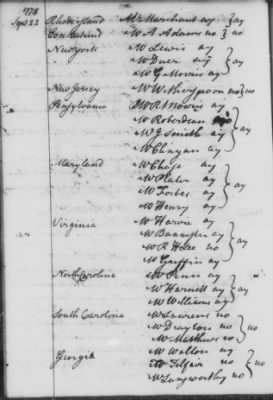 1778
Sept 22 Rhode island Mr Marchant ay } ay
Conneticut Mr A Adams no } no
New york Mr Lewis ay
Mr Duer ay } ay
Mr G Morris ay
New Jersey Mr Witherspoon no } no
Pensylvania Mr R Morris ay
Mr Roberdeau
Mr J Smith ay } ay
Mr Clingan ay
Maryland Mr Chase ay
Mr Plater ay
Mr Forbes ay } ay
Mr Henry ay
Virginia Mr Harvie ay
Mr Banister ay } ay
Mr R H Lee no
Mr Griffin ay
North Carolina Mr Penn ay
Mr Harnett ay } ay
Mr Williams ay
South Carolina Mr Laurens no
Mr Drayton no } no
Mr Mathews no
Georgia Mr Walton ay
Mr Telfair no } no
Mr Langworthy no